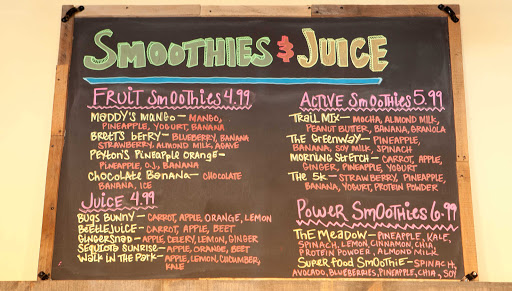 SMOOTHIES & JUICE
FRUIT SmOOTHiES 4.99
MADDY'S MANGO – MANGO,
PINEAPPLE, YOGURT, BANANA
BRETT'S bERRY – BLUEBERRY, BANANA
STRAWBERRY, ALMOND MILK, AGAVE
PEYTON'S PINEAPPLE ORANGE –
PINEAPPLE, O.J., BANANA
CHOCOLATE BANANA – CHOCOLATE
BANANA, ICE
JUICE 4.99
BUGS BUNNY – CARROT, APPLE, ORANGE, LEMON
BEETLEJUICE – CARROT, APPLE, BEET
GINGERSNAP – APPLE, CELERY, LEMON, GINGER
SEQUOIA SUNRISE – APPLE, ORANGE, BEET
WALK IN THE PARK – APPLE, LEMON, CUCUMBER,
KALE
ACTIVE SmOOTHiES 5.99
TRAIL MIX – MOCHA, ALMOND MILK,
PEANUT BUTTER, BANANA, GRANOLA
THE GREENWAY – PINEAPPLE,
BANANA, SOY MILK, SPINACH
MORNING STRETCH – CARROT, APPLE,
GINGER, PINEAPPLE, YOGURT
THE 5K – STRAWBERRY, PINEAPPLE,
BANANA, YOGURT, PROTEIN POWDER
POWER SMOOTHIES 6.99
THE MEADOW – PINEAPPLE, KALE,
SPINACH, LEMON, CINNAMON, CHIA,
PROTEIN POWDER, ALMOND MILK
SUPER FOOD SMOOTHIE – SPINACH,
AVOCADO, BLUEBERRIES, PINEAPPLE, CHIA, SOY